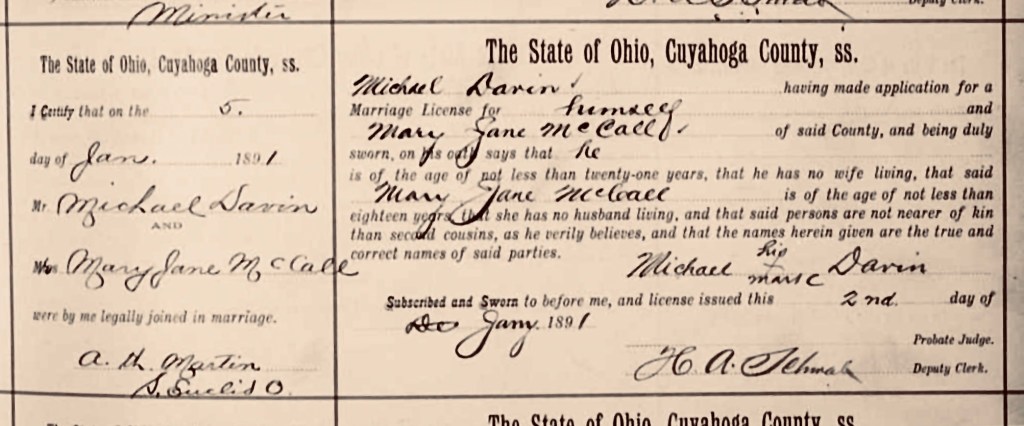 Minister
Deputy Clerk.
The State of Ohio, Cuyahoga County, ss.
I Certify that on the 5.
day of Jan. 1891
Mr Michael Davin
AND
Mary Jane McCall
were by me legally joined in marriage.
A. M. Martin
S. Euclid O.
The State of Ohio, Cuyahoga County, ss.
Michael Davin having made application for a
Marriage License for himself and
Mary Jane McCall of said County, and being duly
sworn, on his oath says that he
is of the age of not less than twenty-one years, that he has no wife living, that said
Mary Jane McCall is of the age of not less than
eighteen years, that she has no husband living, and that said persons are not nearer of kin
than second cousins, as he verily believes, and that the names herein given are the true and
correct names of said parties.
Michael his mark Davin
Subscribed and Sworn to before me, and license issued this 2nd. day of
De Jany. 1891
Probate Judge.
H. A. Schwab Deputy Clerk.
The State of Ohio, Cuyahoga County, ss.